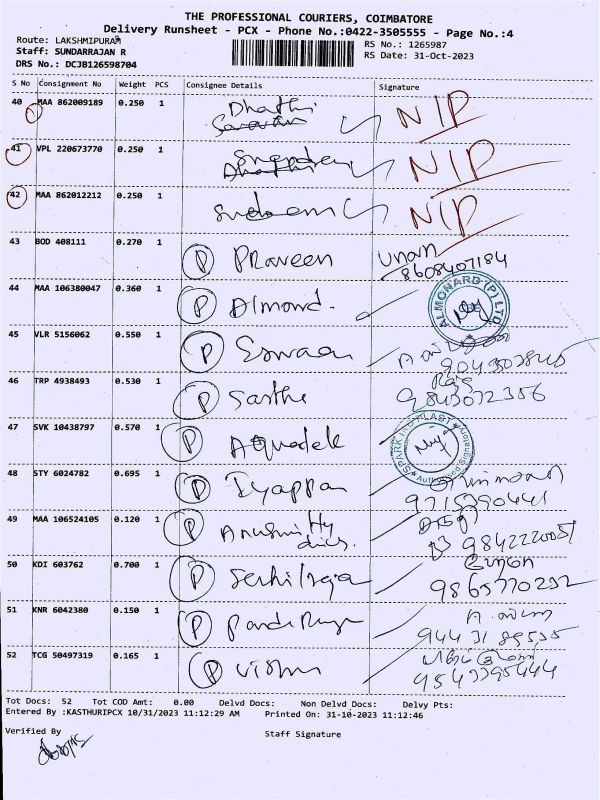 THE PROFESSIONAL COURIERS, COIMBATORE
Delivery Runsheet - PCX - Phone No.:0422-3505555 - Page No.:4
Route: LAKSHMIPURAM
RS No.: 1265987
Staff: SUNDARRAJAN R
RS Date: 31-Oct-2023
DRS No.: DCJB126598704
S No Consignment No Weight PCS Consignee Details Signature
40 MAA 862009189 0.250 1 NIP
41 VPL 220673770 0.250 1 NIP
42 MAA 862012212 0.250 1 NIP
43 BOD 408111 0.270 1 P Praveen
8608407184
44 MAA 106380047 0.360 1 P Almond. ALMONARD (P) LTD
45 VLR 5156062 0.550 1 P Eswaan
46 TRP 4938493 0.530 1 P Sasthi Raja
9843072356
47 SVK 10438797 0.570 1 P SPARK IND PLAST Authorised Signatory
48 STY 6024782 0.695 1 P Iyappan
9715390441
49 MAA 106524105 0.120 1 P
9842220057
50 KDI 603762 0.700 1 P
9865770292
51 KNR 6042380 0.150 1 P
52 TCG 50497319 0.165 1 P Vishnu
Tot Docs: 52 Tot COD Amt: 0.00 Delvd Docs: Non Delvd Docs: Delvy Pts:
Entered By :KASTHURIPCX 10/31/2023 11:12:29 AM Printed On: 31-10-2023 11:12:46
Verified By Staff Signature